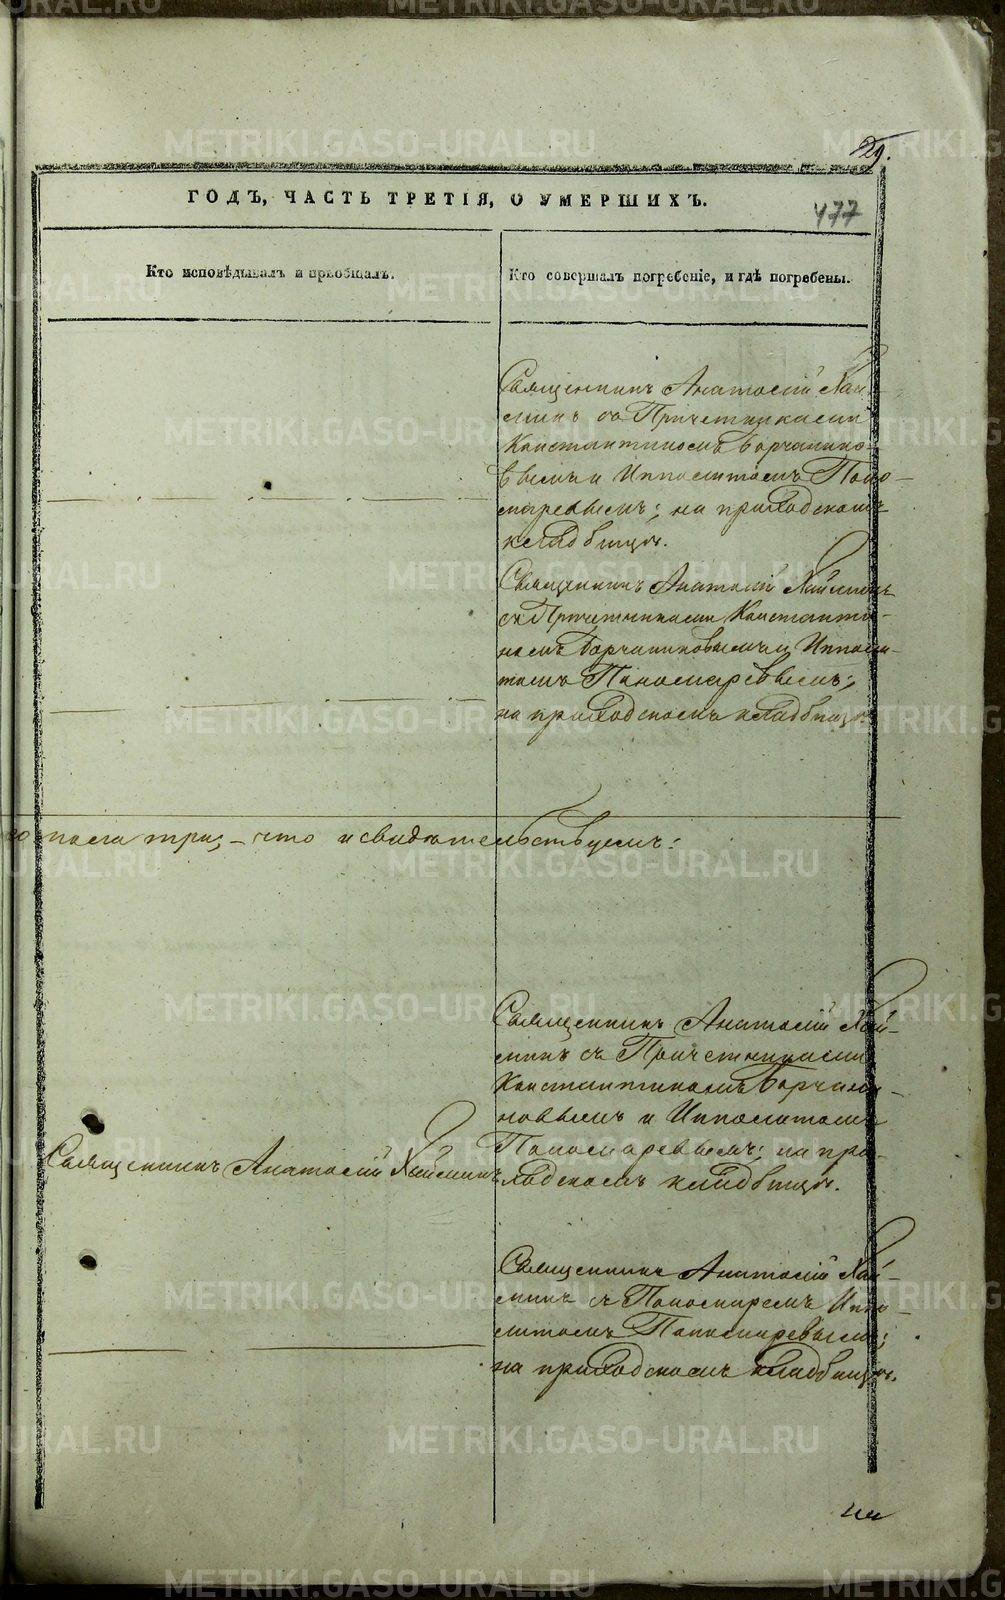 29.
ГОДЪ, ЧАСТЬ ТРЕТІЯ, О УМЕРШИХЪ.
477
Кто исповѣдывалъ и пріобщалъ.
Кто совершалъ погребеніе, и гдѣ погребены.
Священникъ Анатолій Хай-
минъ съ Причетниками
Константиномъ Борчанино-
вымъ и Ипполитомъ Поно-
маревымъ; на приходскомъ
кладбищѣ.
Священникъ Анатолій Хайминъ
съ Причетниками Константи-
номъ Борчаниновымъ и Ипполи-
томъ Пономаревымъ;
на приходскомъ кладбищѣ.
пола три, – что и свидѣтельствуемъ:
Священникъ Анатолій Хай-
минъ съ Причетниками
Константиномъ Борчани-
новымъ и Ипполитомъ
Пономаревымъ; на при-
ходскомъ кладбищѣ.
Священникъ Анатолій Хайминъ
Священникъ Анатолій Хай-
минъ съ Пономаремъ Иппо-
литомъ Пономаревымъ;
на приходскомъ кладбищѣ.
METRIKI.GASO-URAL.RU